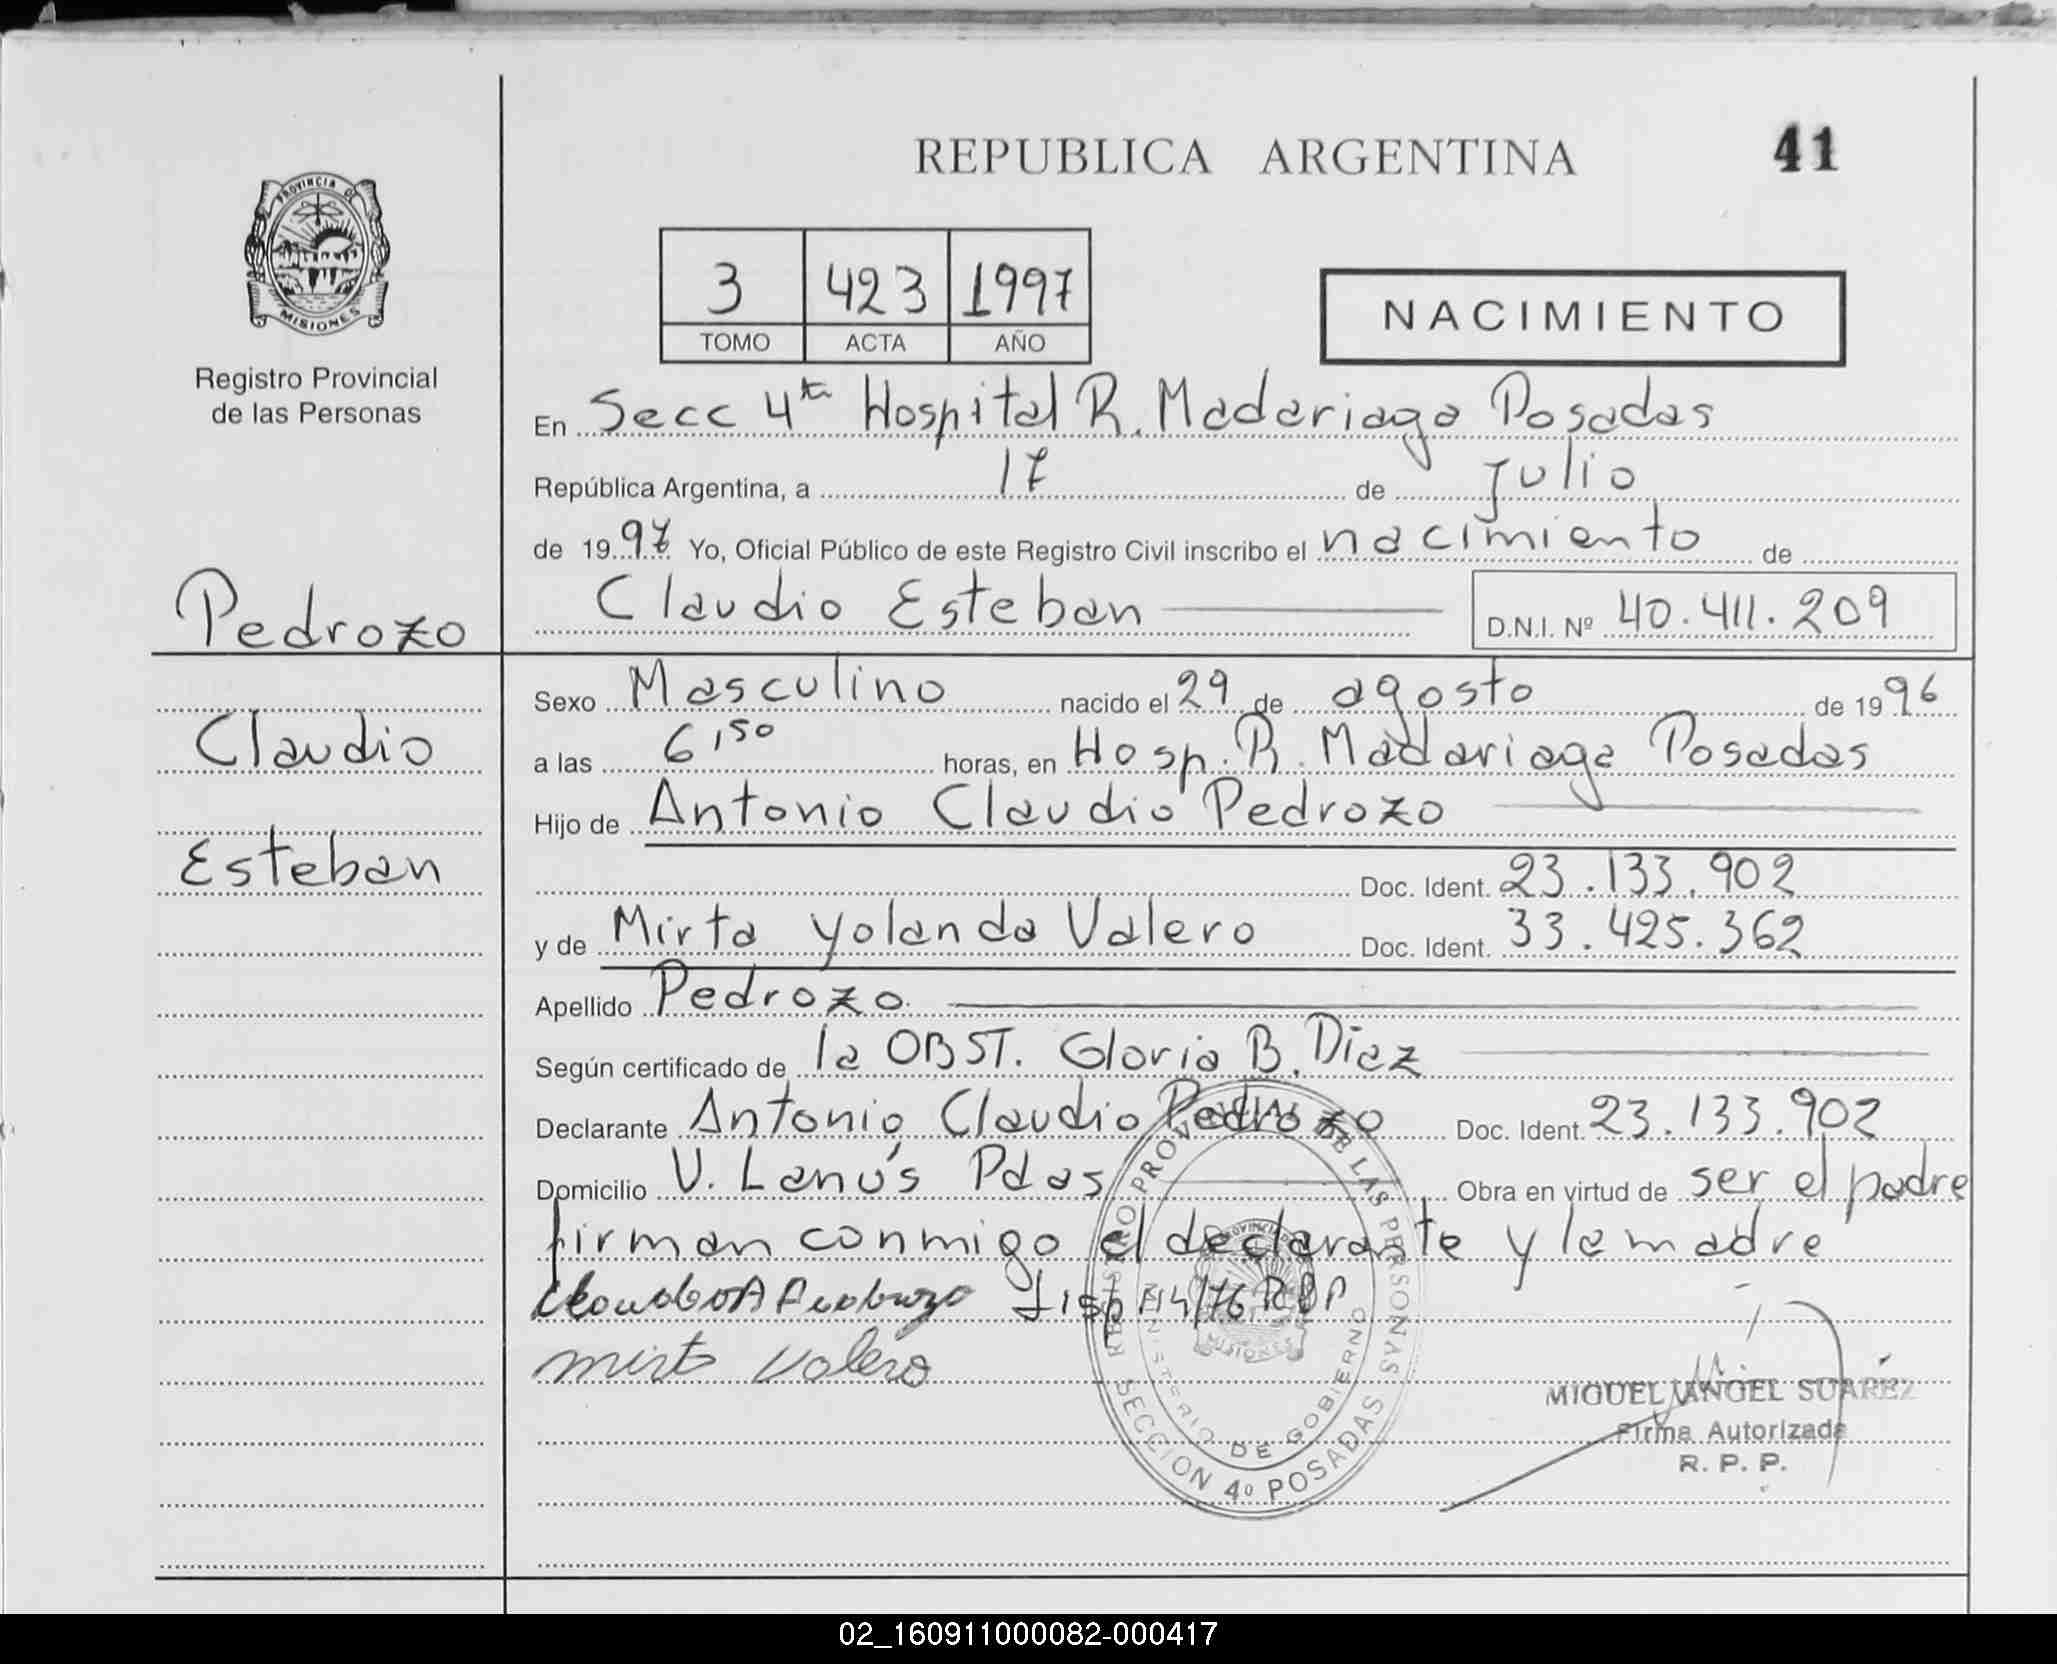 REPUBLICA ARGENTINA
41
PROVINCIA DE
MISIONES
Registro Provincial
de las Personas
3 423 1997
TOMO ACTA AÑO
NACIMIENTO
En Secc 4ta Hospital R. Madariaga Posadas
República Argentina, a 17 de julio
de 1997 Yo, Oficial Público de este Registro Civil inscribo el nacimiento de
Claudio Esteban D.N.I. Nº 40.411.209
Pedrozo
Claudio
Esteban
Sexo Masculino nacido el 29 de agosto de 1996
a las 6,50 horas, en Hosp. R. Madariaga Posadas
Hijo de Antonio Claudio Pedrozo
Doc. Ident. 23.133.902
y de Mirta Yolanda Valero Doc. Ident. 33.425.362
Apellido Pedrozo
Según certificado de la OBST. Gloria B. Diaz
Declarante Antonio Claudio Pedrozo Doc. Ident. 23.133.902
Domicilio V. Lanús Pdas Obra en virtud de ser el padre
firman conmigo el declarante y la madre
Disp 114/76 RPP
Mirta Valero
REGISTRO PROVINCIAL DE LAS PERSONAS
SECCION 4º POSADAS
MINISTERIO DE GOBIERNO
PROVINCIA
MISIONES
MIGUEL ANGEL SUAREZ
Firma Autorizada
R. P. P.
02_160911000082-000417